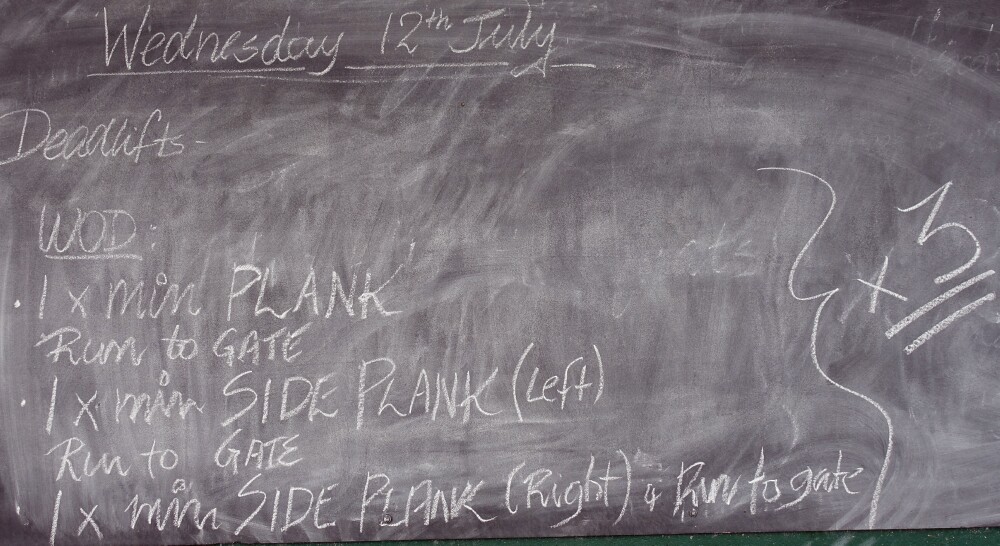 Wednesday 12th July
Deadlifts-
WOD:
. 1 x min PLANK
Run to GATE
. 1 x min SIDE PLANK (Left)
Run to GATE
. 1 x min SIDE PLANK (Right) & Run to gate
x 3